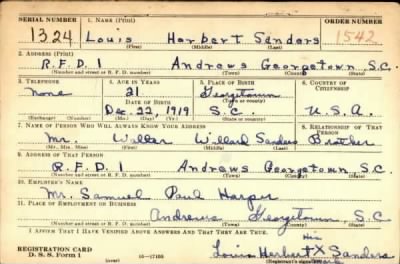 SERIAL NUMBER 1. NAME (Print) ORDER NUMBER
1324 Louis Herbert Sanders 1542
(First) (Middle) (Last)
2. ADDRESS (Print)
R.F.D. 1 Andrews Georgetown S.C.
(Number and street or R. F. D. number) (Town) (County) (State)
3. TELEPHONE 4. AGE IN YEARS 5. PLACE OF BIRTH 6. COUNTRY OF CITIZENSHIP
None 21 Georgetown
DATE OF BIRTH (Town or county)
Dec. 22, 1919 S.C. U.S.A.
(Exchange) (Number) (Mo.) (Day) (Yr.) (State or country)
7. NAME OF PERSON WHO WILL ALWAYS KNOW YOUR ADDRESS 8. RELATIONSHIP OF THAT PERSON
Mr. Willard Sanders Brother
(Mr., Mrs., Miss) (First) (Middle) (Last)
9. ADDRESS OF THAT PERSON
R.F.D. 1 Andrews Georgetown S.C.
(Number and street or R. F. D. number) (Town) (County) (State)
10. EMPLOYER'S NAME
Mr. Samuel Paul Harper
11. PLACE OF EMPLOYMENT OR BUSINESS
Andrews Georgetown, S.C
(Number and street or R. F. D. number) (Town) (County) (State)
I AFFIRM THAT I HAVE VERIFIED ABOVE ANSWERS AND THAT THEY ARE TRUE.
His
REGISTRATION CARD Louis Herbert X Sanders
D. S. S. Form 1 16—17105 (Registrant's signature)